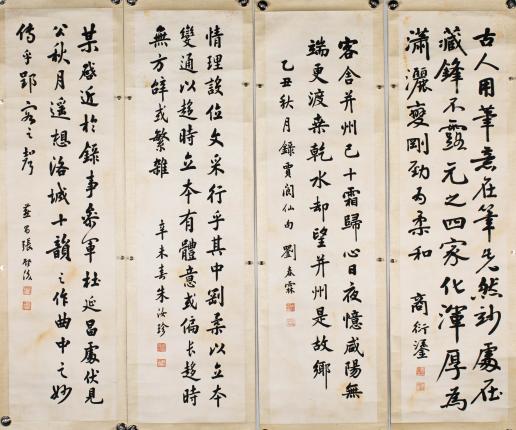 古人用筆意在筆先然妙處在
藏鋒不露元之四家化渾厚為
瀟灑變剛勁為柔和
商衍鎏
客舍并州已十霜歸心日夜憶咸陽無
端更渡桑乾水却望并州是故鄉
乙丑秋月錄賈閬仙句 劉春霖
情理設位文采行乎其中剛柔以立本
變通以趍時立本有體意或偏長趍時
無方辭或繁雜
辛未春朱汝珍
某啟近於錄事參軍杜延昌處伏見
公秋月遥想洛城十韻之作曲中之妙
傳乎郢客之
張啓後